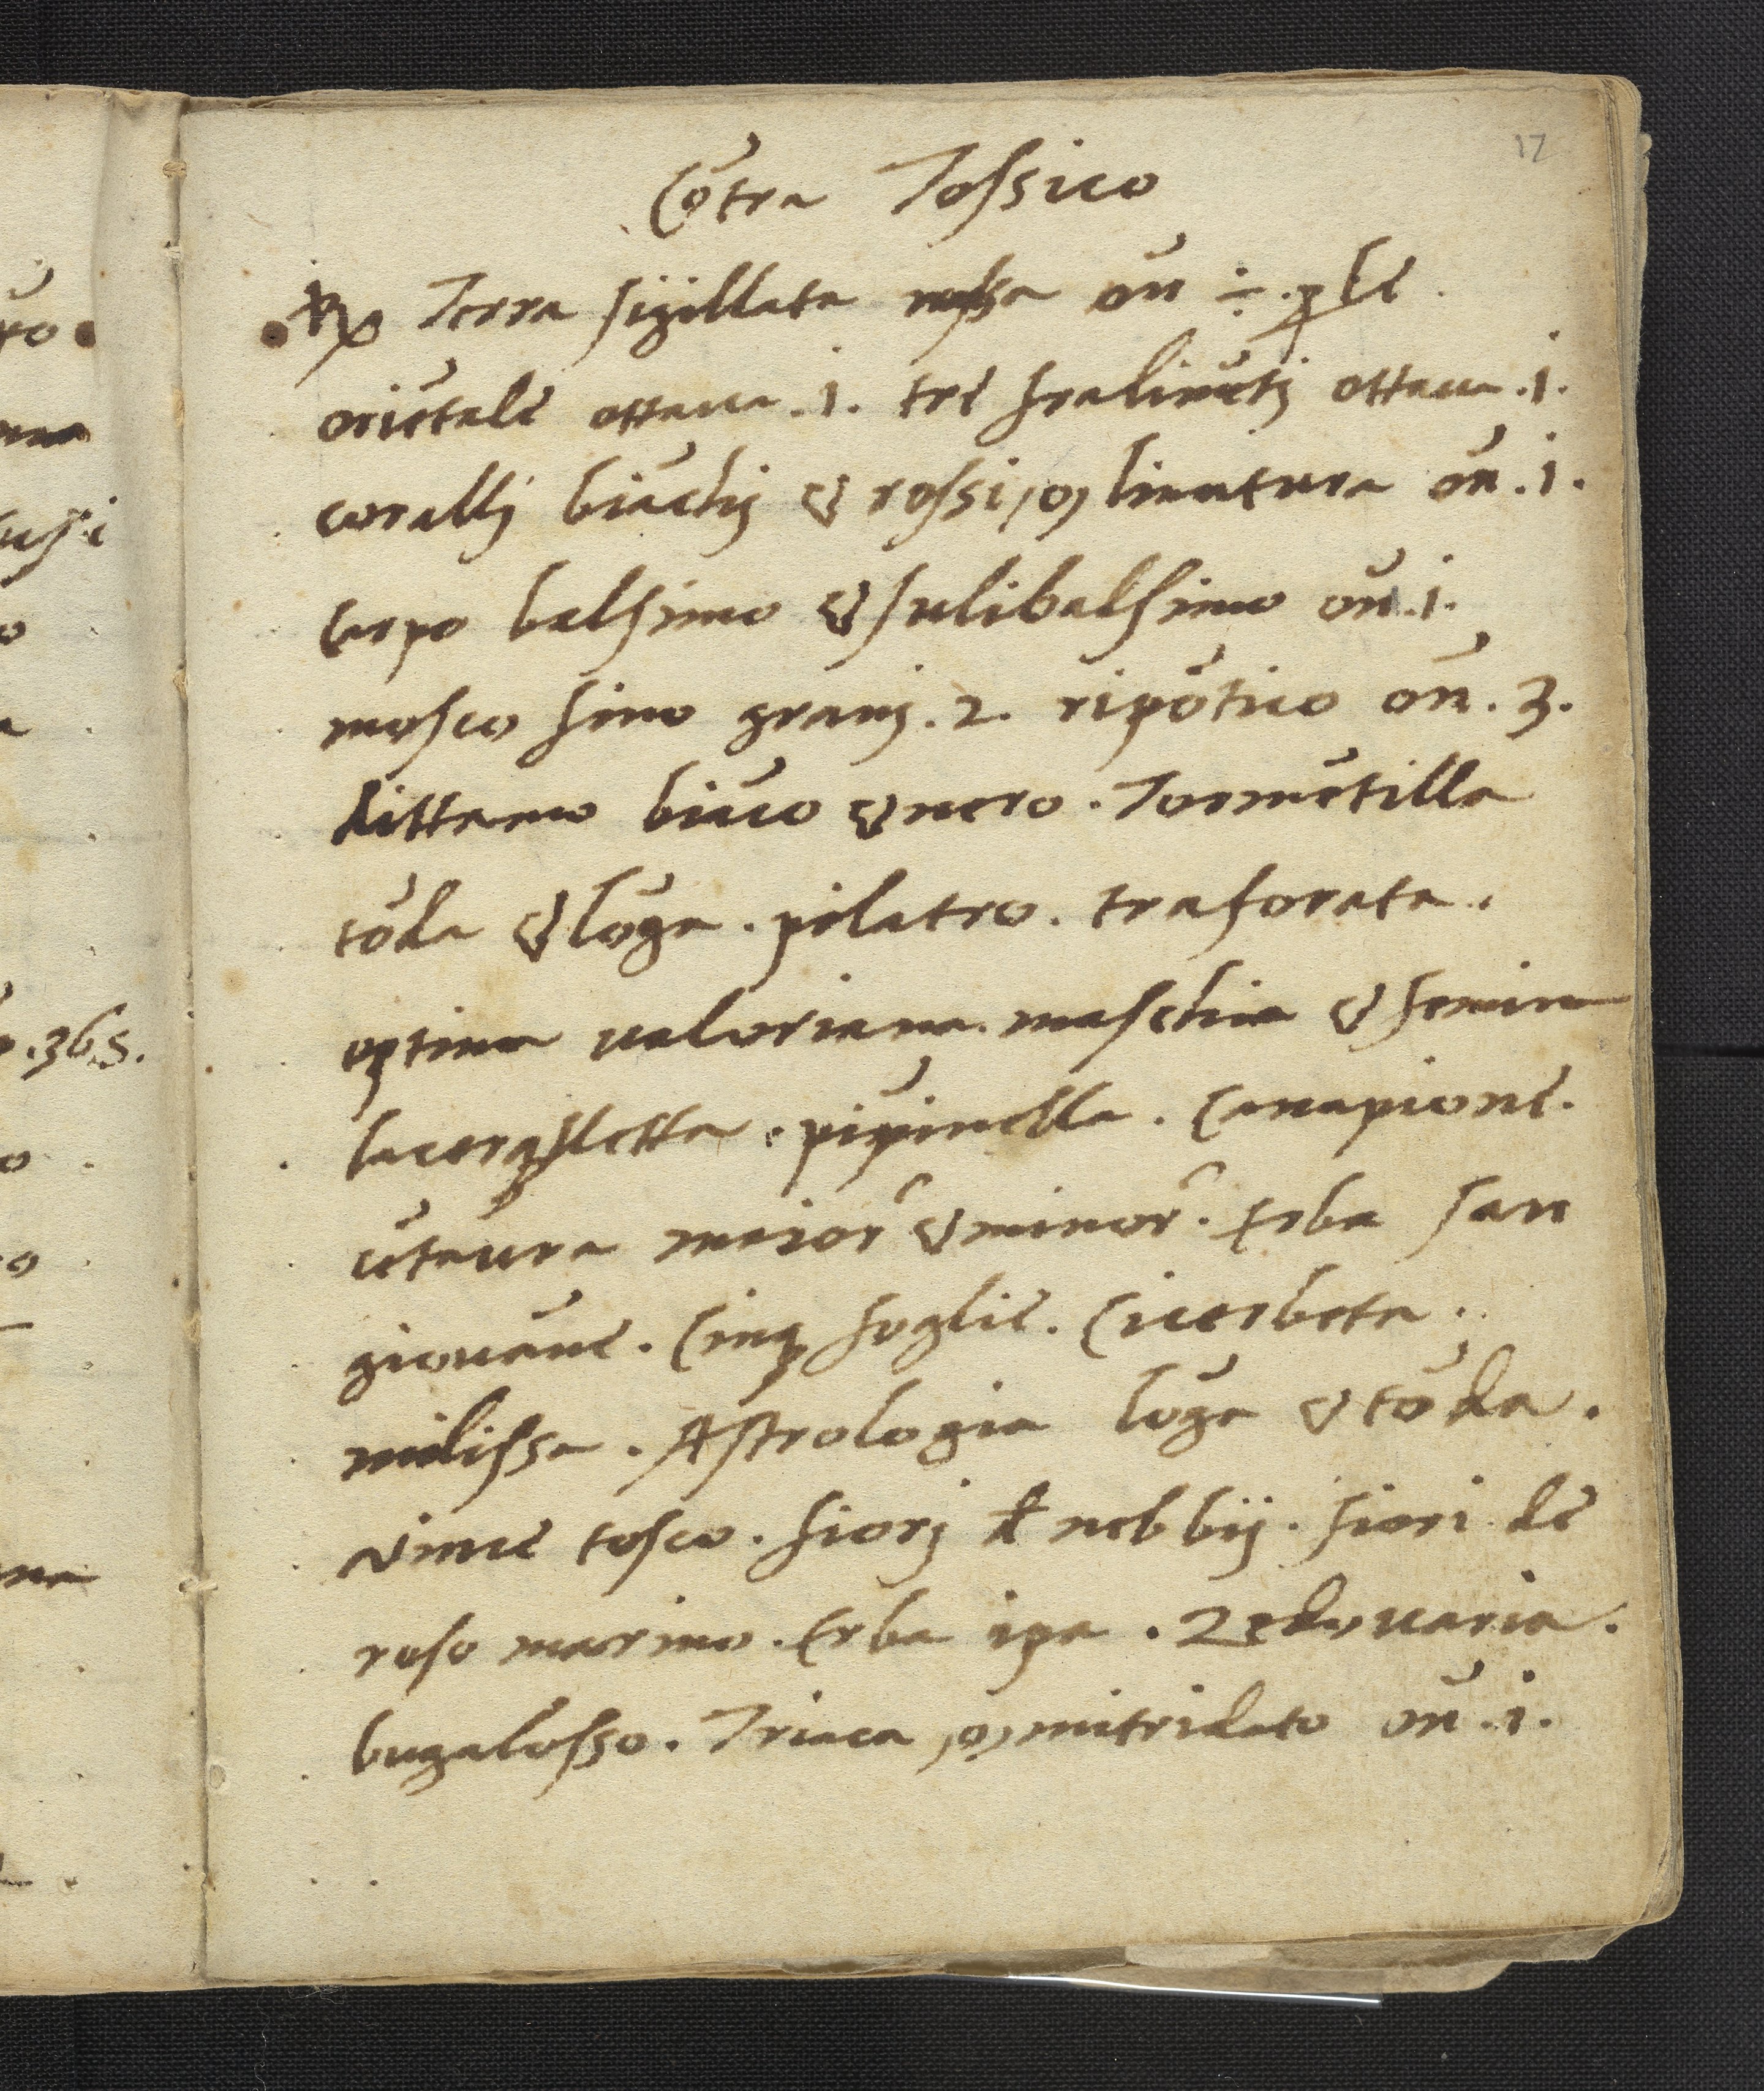 17
Cõtra Tossico
℞ Terra sigillata rossa on̄ ÷. ꝑle
oriẽtale ottaua .1. tre fralinẽtj ottaua .j.
corallj biãchj & rossi, o, limatura on̄ .i.
carpo balsimo & silibalsimo on̄ .i.
mosco fino granj .2. ripõtico on̄ .3.
dittamo biãco & nero . Tormẽtilla
tõda & lõga . pilatro . traforata .
optima valoriana . maschia & femina
lacerq lletta . pĩpinella . Canapione .
cẽtaura maior & minor . Erba san
giouãne . Cinq foglie . Cicerbeta .
milissa . Astrologia lõga & tõda .
vince tosco . fiorj d nebbij . fiori de
roso marino . Erba ipa . Zedouaria .
bugalosso . Triaca , o, mitridato on̄ .i.
.365.